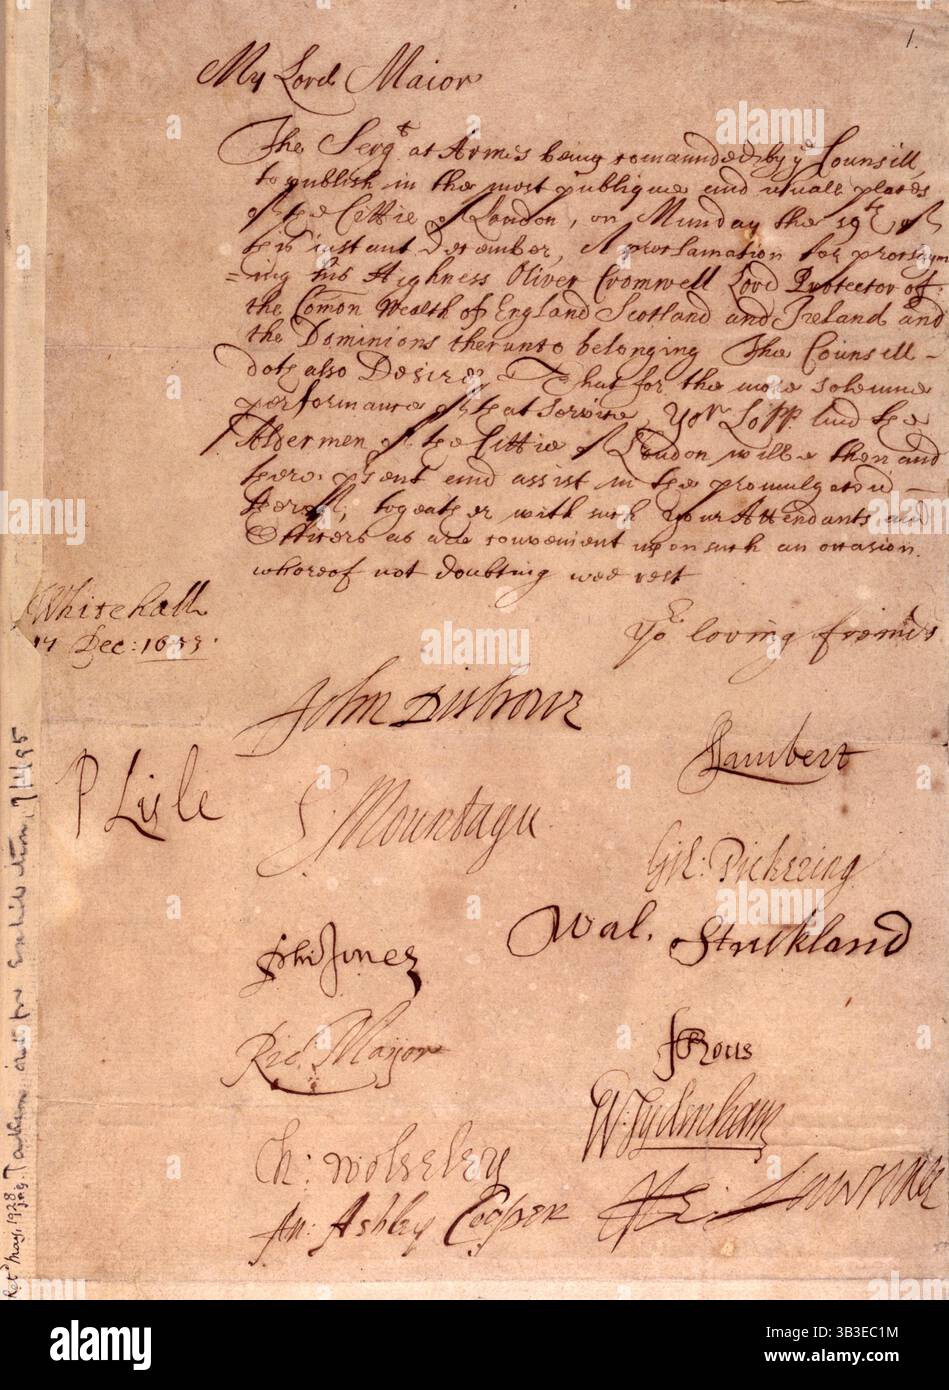 1.
My Lord Maior
The Sergt at Armes being comaunded by ye Counsill,
to publish in the most publique and usuall places
of the Cittie of London, on Munday the 19th of
this instant December, A proclamation for proclaym
=ing his Highness Oliver Cromwell Lord Protector of
the Comon Wealth of England Scotland and Ireland and
the Dominions thereunto belonging The Counsill -
doth also Desire, That for the more solemne
performance of that service, Yor Lopp. and the
Aldermen of the Cittie of London will be then and
there p'sent and assist in the promulgacon -
thereof, togeather with such your Attendants and
Officers as are convenient upon such an occasion.
whereof not doubting wee rest
Whitehall
17 Dec: 1653.
Yor loving friends
John Disbrowe
Lambert
P Lisle
E. Mountagu
Gil: Pickering
Wal. Strickland
Phi Jones
Ric. Maijor
F Rous
W: Sydenham
Ch: Wolseley
An: Ashley Cooper
He: Lawrence
Retd May, 1928
a alamy
Image ID: 2B3EC1M
www.alamy.com